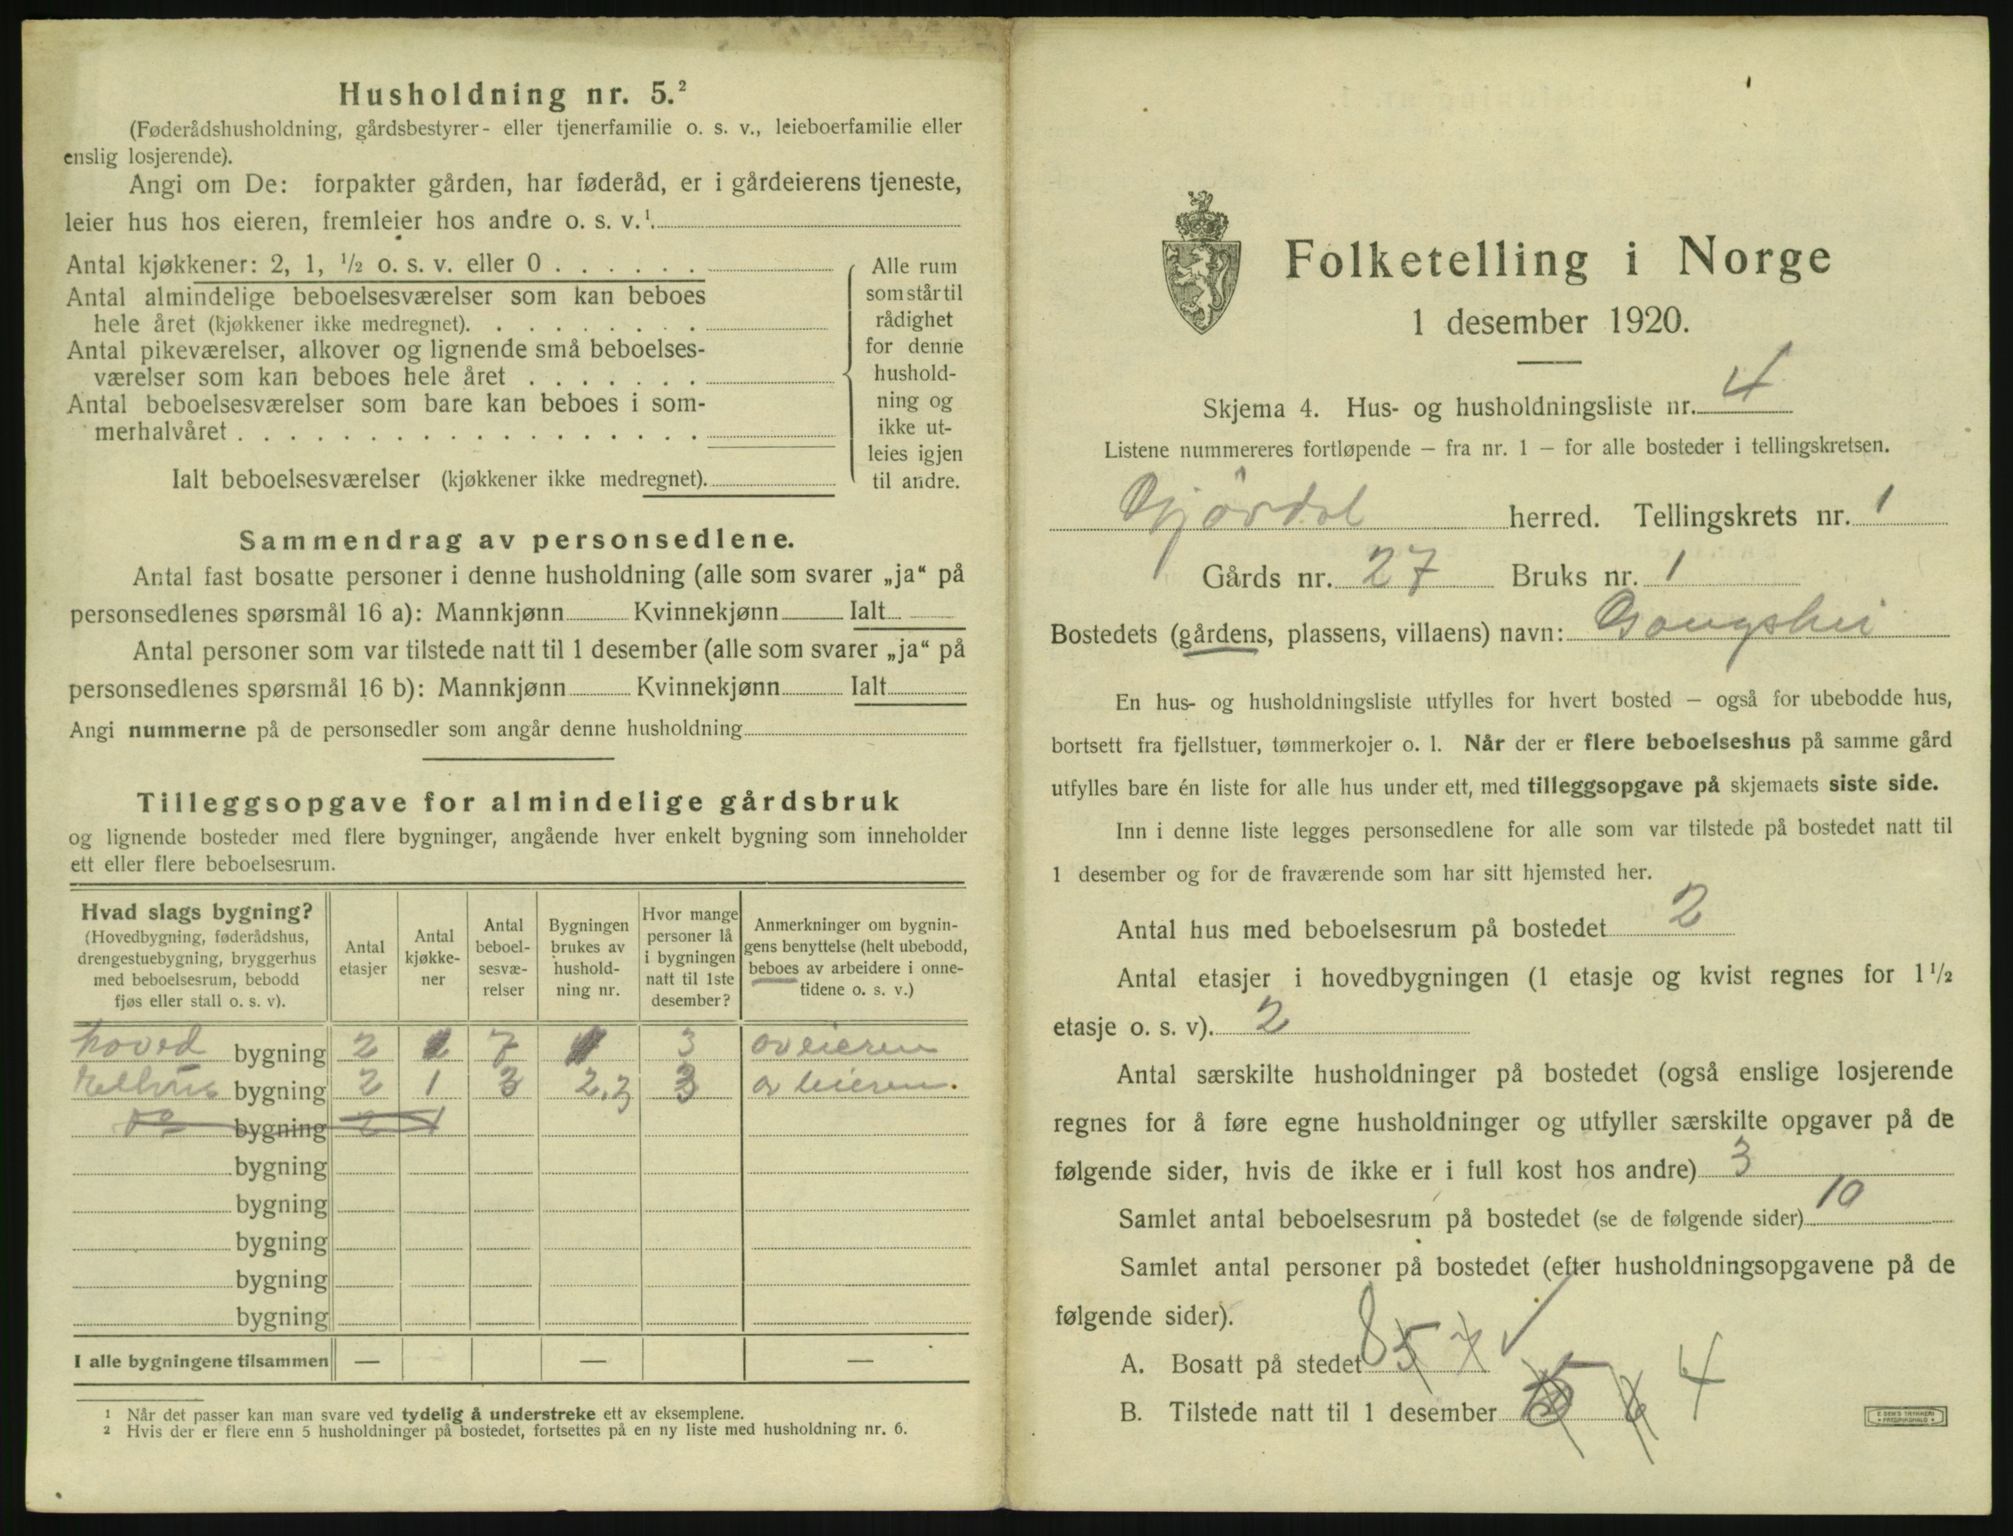 Husholdning nr. 5.²
(Føderådshusholdning, gårdsbestyrer- eller tjenerfamilie o. s. v., leieboerfamilie eller
enslig losjerende).
Angi om De: forpakter gården, har føderåd, er i gårdeierens tjeneste,
leier hus hos eieren, fremleier hos andre o. s. v.¹
Antal kjøkkener: 2, 1, ½ o. s. v. eller 0 . . . . . .
Antal almindelige beboelsesværelser som kan beboes
hele året (kjøkkener ikke medregnet). . . . . . . . .
Antal pikeværelser, alkover og lignende små beboelses-
værelser som kan beboes hele året . . . . . . .
Antal beboelsesværelser som bare kan beboes i som-
merhalvåret . . . . . . . . . . . . . . . . . .
Ialt beboelsesværelser (kjøkkener ikke medregnet).
Alle rum
som står til
rådighet
for denne
hushold-
ning og
ikke ut-
leies igjen
til andre.
Sammendrag av personsedlene.
Antal fast bosatte personer i denne husholdning (alle som svarer „ja“ på
personsedlenes spørsmål 16 a): Mannkjønn Kvinnekjønn Ialt
Antal personer som var tilstede natt til 1 desember (alle som svarer „ja“ på
personsedlenes spørsmål 16 b): Mannkjønn Kvinnekjønn Ialt
Angi nummerne på de personsedler som angår denne husholdning
Tilleggsopgave for almindelige gårdsbruk
og lignende bosteder med flere bygninger, angående hver enkelt bygning som inneholder
ett eller flere beboelsesrum.
Hvad slags bygning?
(Hovedbygning, føderådshus,
drengestuebygning, bryggerhus
med beboelsesrum, bebodd
fjøs eller stall o. s. v).
Antal
etasjer
Antal
kjøkke-
ner
Antal
beboel-
sesvæ-
relser
Bygningen
brukes av
hushold-
ning nr.
Hvor mange
personer lå
i bygningen
natt til 1ste
desember?
Anmerkninger om bygnin-
gens benyttelse (helt ubebodd,
beboes av arbeidere i onne-
tidene o. s. v.)
hoved bygning 2 7 3 av eieren
bygning 2 1 3 2.3 3 av eieren.
bygning 2 1
bygning
bygning
bygning
bygning
bygning
I alle bygningene tilsammen — — —
¹ Når det passer kan man svare ved tydelig å understreke ett av eksemplene.
² Hvis der er flere enn 5 husholdninger på bostedet, fortsettes på en ny liste med husholdning nr. 6.
Folketelling i Norge
1 desember 1920.
Skjema 4. Hus- og husholdningsliste nr. 4
Listene nummereres fortløpende — fra nr. 1 — for alle bosteder i tellingskretsen.
herred. Tellingskrets nr. 1
Gårds nr. 27 Bruks nr. 1
Bostedets (gårdens, plassens, villaens) navn:
En hus- og husholdningsliste utfylles for hvert bosted — også for ubebodde hus,
bortsett fra fjellstuer, tømmerkojer o. l. Når der er flere beboelseshus på samme gård
utfylles bare én liste for alle hus under ett, med tilleggsopgave på skjemaets siste side.
Inn i denne liste legges personsedlene for alle som var tilstede på bostedet natt til
1 desember og for de fraværende som har sitt hjemsted her.
Antal hus med beboelsesrum på bostedet 2
Antal etasjer i hovedbygningen (1 etasje og kvist regnes for 1½
etasje o. s. v). 2
Antal særskilte husholdninger på bostedet (også enslige losjerende
regnes for å føre egne husholdninger og utfyller særskilte opgaver på de
følgende sider, hvis de ikke er i full kost hos andre) 3
Samlet antal beboelsesrum på bostedet (se de følgende sider) 10
Samlet antal personer på bostedet (efter husholdningsopgavene på de
følgende sider).
A. Bosatt på stedet 8 5 7
B. Tilstede natt til 1 desember 6 4